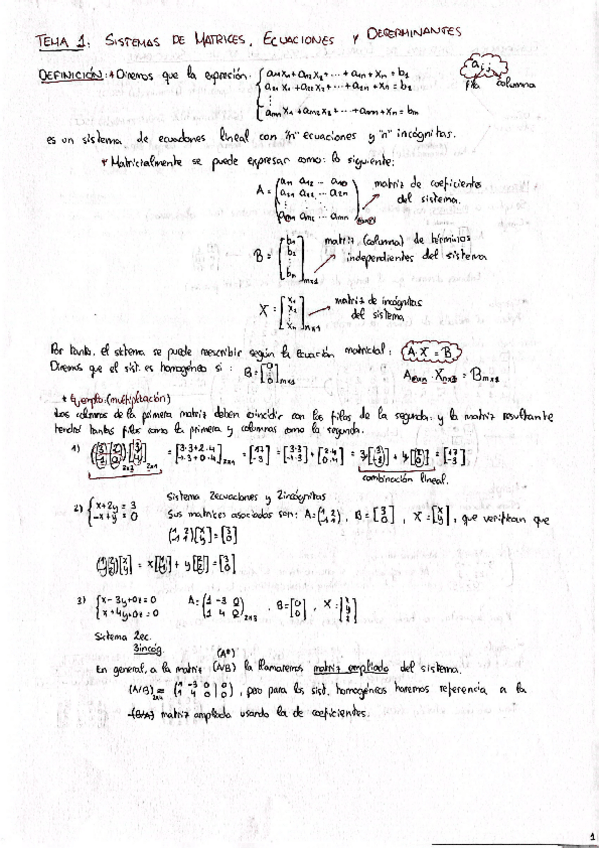 TEMA 1: SISTEMAS DE MATRICES, ECUACIONES Y DETERMINANTES
DEFINICIÓN: Diremos que la expresión: { a11x1 + a12x2 + ... + a1n + xn = b1
a21x1 + a22x2 + ... + a2n + xn = b2
am1x1 + am2x2 + ... + amn + xn = bm
aij
fila columna
es un sistema de ecuaciones lineal con "n" ecuaciones y "n" incógnitas.
Matricialmente se puede expresar como lo siguiente:
A = (a11 a12 ... a1n
a21 a22 ... a2n
am1 am2 ... amn)
matriz de coeficientes
del sistema.
B = [b1
b2
bm] mx1
matriz (columna) de términos
independientes del sistema
X = [x1
x2
xn] nx1
matriz de incógnitas
del sistema.
Por tanto, el sistema se puede reescribir según la ecuación matricial: A·X = B
Diremos que el sist. es homogéneo si: B = [0 0] mx1
Amxn · Xnx1 = Bmx1
Ejemplo: (multiplicación)
Las columnas de la primera matriz deben coincidir con las filas de la segunda y la matriz resultante
tendrá tantas filas como la primera y columnas como la segunda.
combinación lineal.
2) { x+2y = 3
-x+y = 0
Sistema 2 ecuaciones y 2 incógnitas
Sus matrices asociadas son: A = (1 2 -1 1), B = [3 0], X = [x y], que verifican que
(1 2 -1 1)[x y] = [3 0]
(1 2 -1 1)[x y] = x[1 -1] + y[2 1] = [3 0]
3) { x-3y+0z = 0
x+4y+0z = 0
A = (1 -3 0 1 4 0) 2x3, B = [0 0], X = [x y z]
Sistema 2ec.
3incóg.
(A*)
En general, a la matriz (A/B) la llamaremos matriz ampliada del sistema.
(A/B) = (1 -3 0 | 0 1 4 0 | 0), pero para los sist. homogéneos haremos referencia a la
matriz ampliada usando la de coeficientes.
1